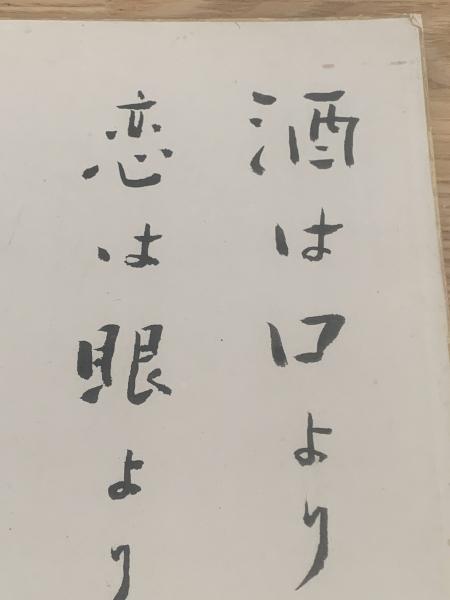 酒は口より
恋は眼より